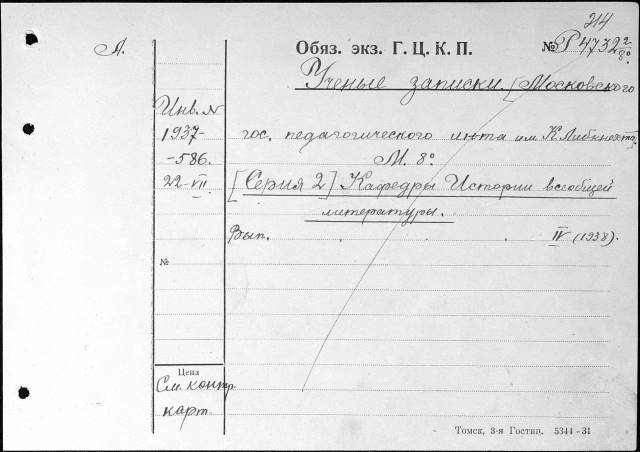 214
А.
Обяз. экз. Г. Ц. К. П. № Р 4732 2/8°
Ученые записки. [Московского
Инв. N
1937- гос. педагогического ин-та им. К. Либкнехта]
-586. М. 8°
22-VII [Серия 2] Кафедры Истории всеобщей
литературы.
Вып. . . . IV (1938).
№
Цена
См. контр.
карт.
Томск, 3-я Гостип. 5344-31